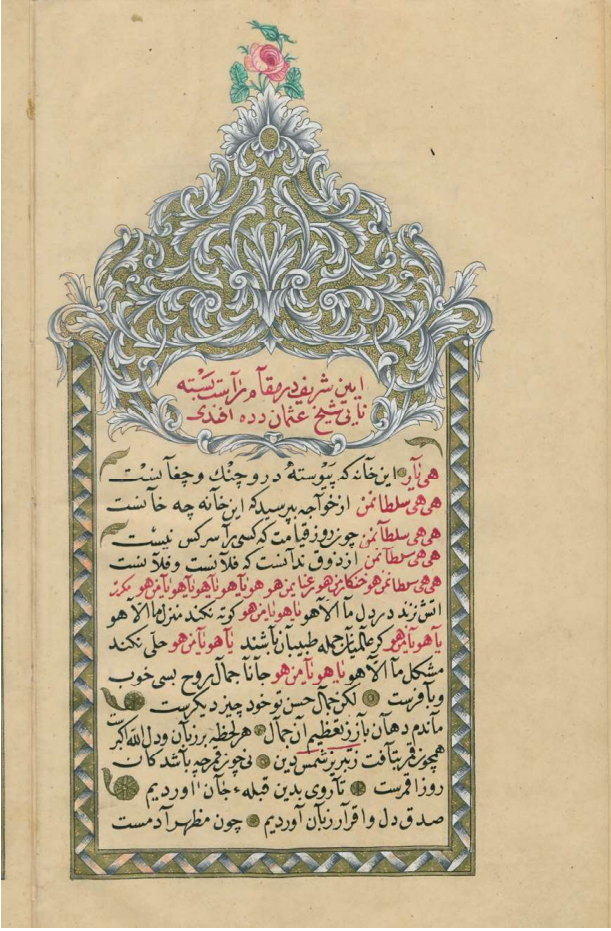 ایین شریف در مقام راست بسته
نایی شیخ عثمان دده افندی
هی یار این خانه که پیوسته در و چنك و چغانست
هی هی سلطانمن از خواجه بپرسید که این خانه چه خانست
هی هی سلطانمن چون روز قیامت که کسی را سر کس نیست
هی هی سلطانمن از ذوق ندانست که فلانست و فلانست
هی هی سلطانمن هو خنکارمن هو یمن هو هو یاهو یاهو یاهو یامن هو مکرر
اتش زند در دل ما الا هو یاهو یامن هو کوته نکند منزل ما الا هو
یاهو یامن هو کر عالمیان جمله طبیبان باشند یاهو یامن هو حلی نکند
مشکل ما الا هو یاهو یامن هو جانا جمال روح بسی خوب
و بافرست لکن جمال حسن تو خود چیز دیکرست
ماندم دهان باز ز تعظیم آن جمال هر لحظه بر زبان و دل الله اکبرست
همچون قمر بتافت ز تبریز شمس دین نی چون قمر چه باشد کان
روز اقمرست تا روی بدین قبلهء جان اوردیم
صدق دل و اقرار زبان آوردیم چون مظهر آدمست